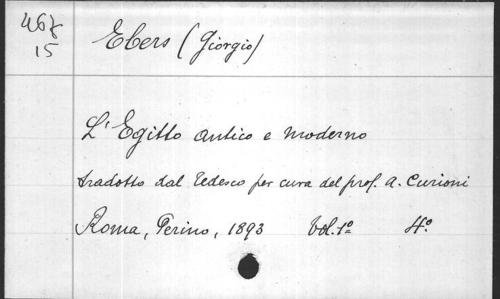 467
15
Ebers (Giorgio)
L'Egitto antico e moderno
tradotto dal Tedesco per cura del prof. A. Curioni
Roma, Perino, 1893 Vol. 1º 4º